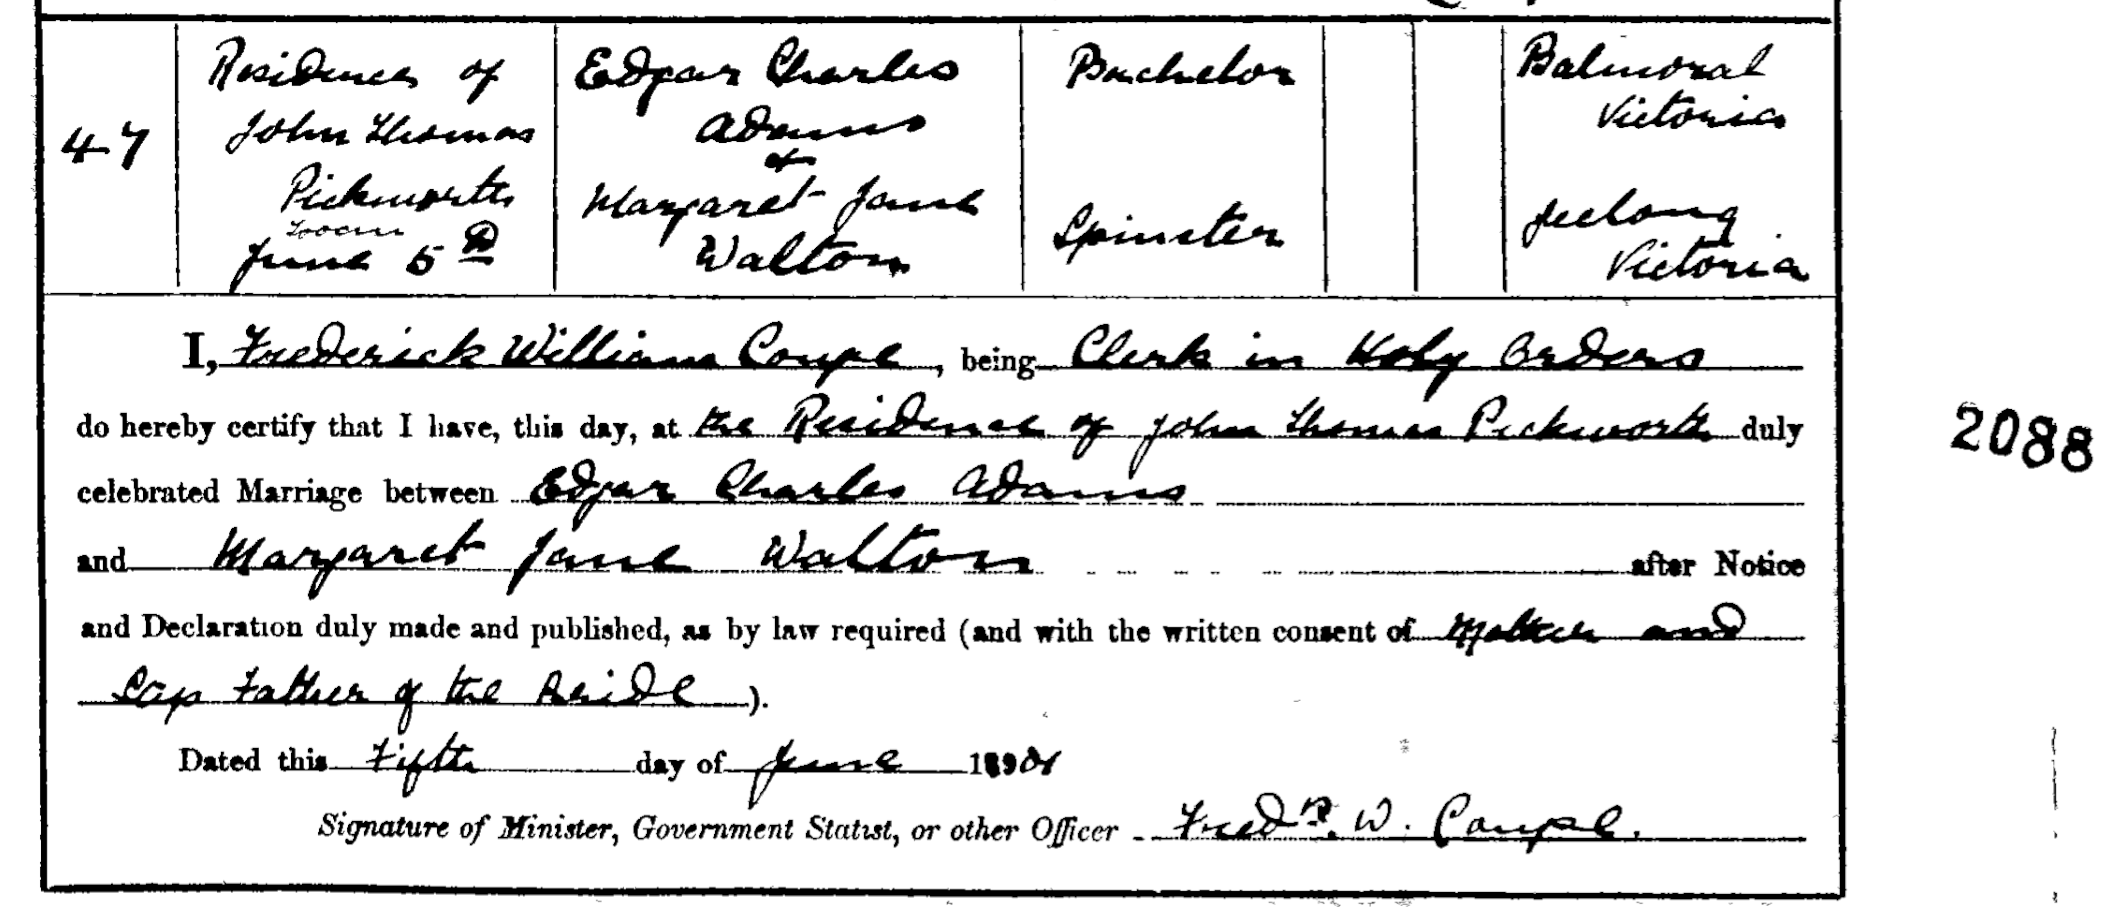 47
Residence of
John Thomas
Pickworth
June 5th
Edgar Charles
Adams
&
Margaret Jane
Walton
Bachelor
Spinster
Balmoral
Victoria
Geelong
Victoria
I, Frederick William Coupe, being Clerk in Holy Orders
do hereby certify that I have, this day, at the Residence of John Thomas Pickworth duly
2088
celebrated Marriage between Edgar Charles Adams
and Margaret Jane Walton after Notice
and Declaration duly made and published, as by law required (and with the written consent of Mother and
Step Father of the Bride).
Dated this Fifth day of June
Signature of Minister, Government Statist, or other Officer Fredk. W. Coupe.